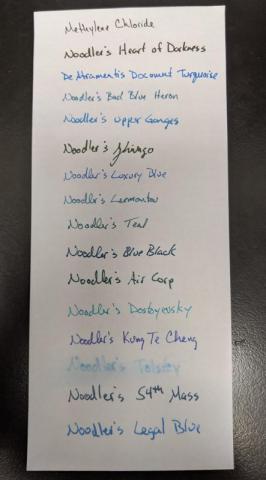 Methylene Chloride
Noodler's Heart of Darkness
De Atramentis Document Turquoise
Noodler's Bad Blue Heron
Noodler's Upper Ganges
Noodler's
Noodler's Luxury Blue
Noodler's Lermontov
Noodler's Teal
Noodler's Blue Black
Noodler's Air Corp
Noodler's Dostoyevsky
Noodler's Kung Te Cheng
Noodler's Tolstoy
Noodler's 54th Mass
Noodler's Legal Blue